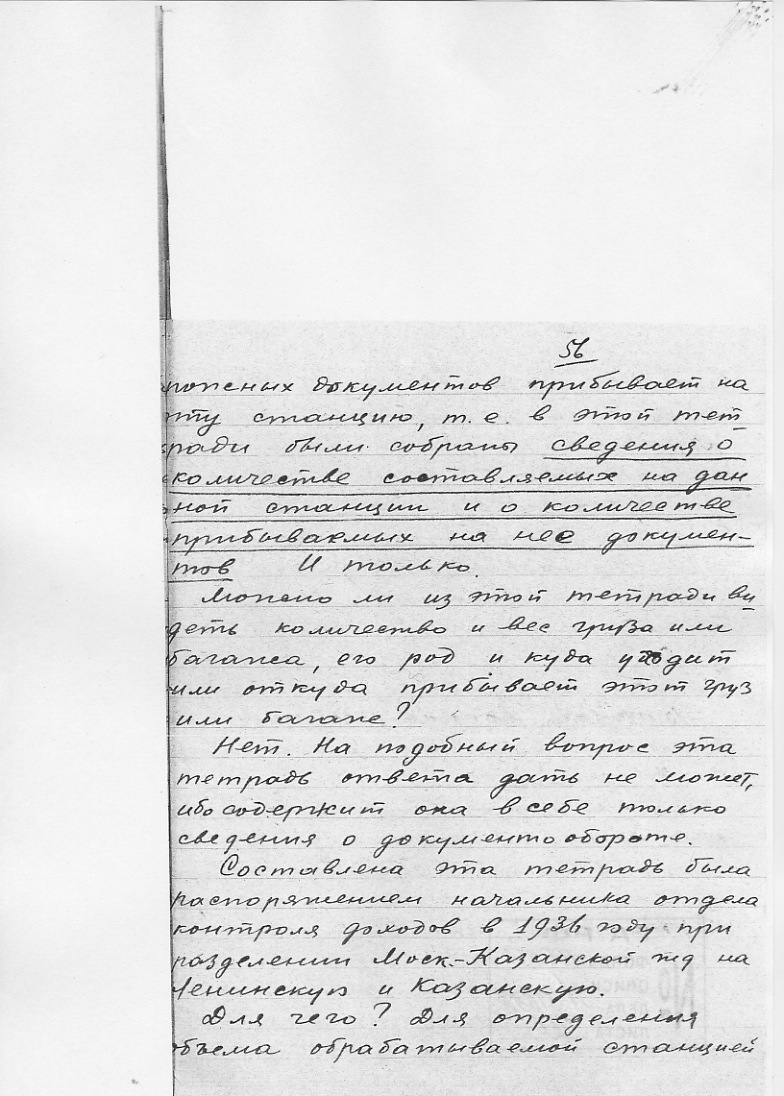 56
рожных документов прибывает на
эту станцию, т.е. в этой тет
ради были собраны сведения о
количестве составляемых на дан
ной станции и о количестве
прибываемых на нее докумен-
тов И только.
Можно ли из этой тетради ви
деть количество и вес груза или
багажа, его род и куда уходит
или откуда прибывает этот груз
или багаж?
Нет. На подобный вопрос эта
тетрадь ответа дать не может,
ибо содержит она в себе только
сведения о документообороте.
Составлена эта тетрадь была
распоряжением начальника отдела
контроля доходов в 1936 году при
разделении Моск.-Казанской жд на
Ленинскую и Казанскую.
Для чего? Для определения
объема обрабатываемой станцией